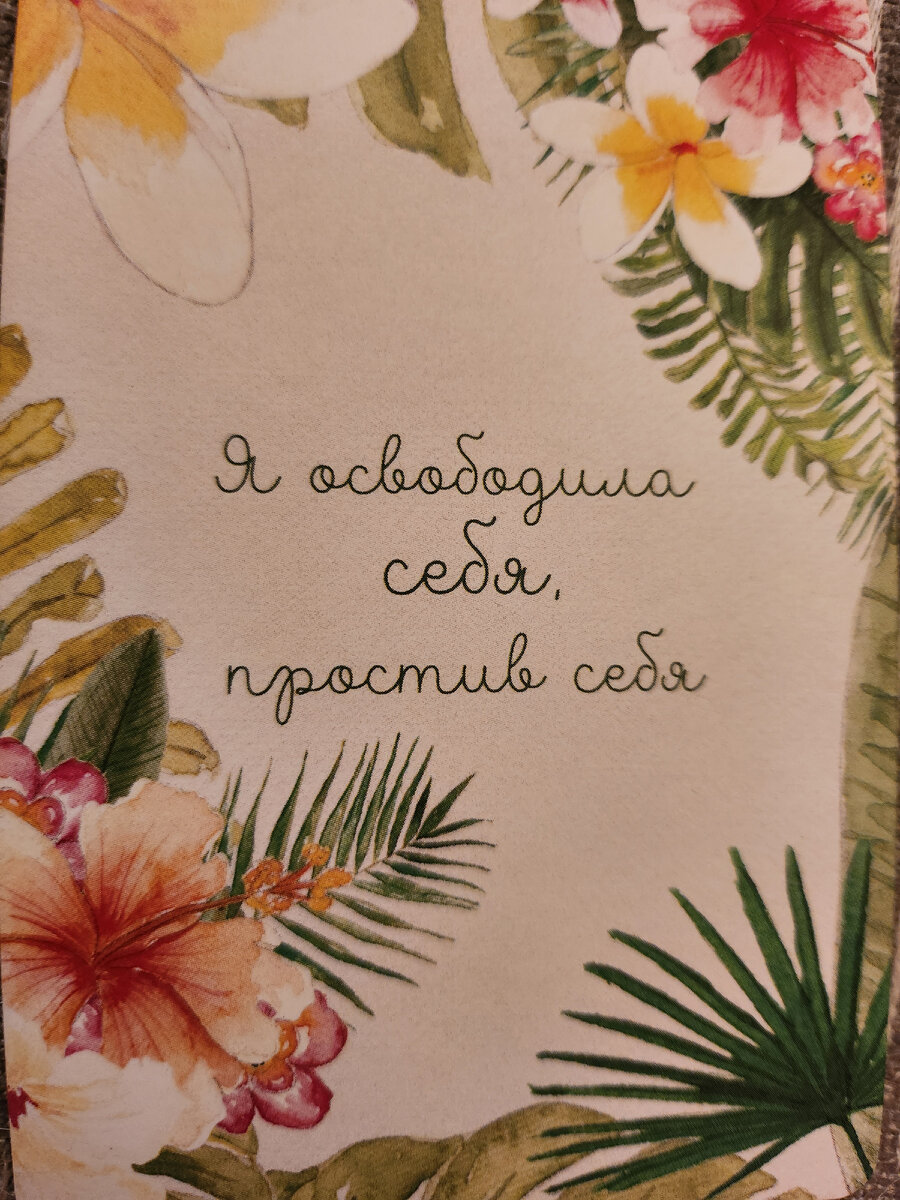 Я освободила
себя,
простив себя